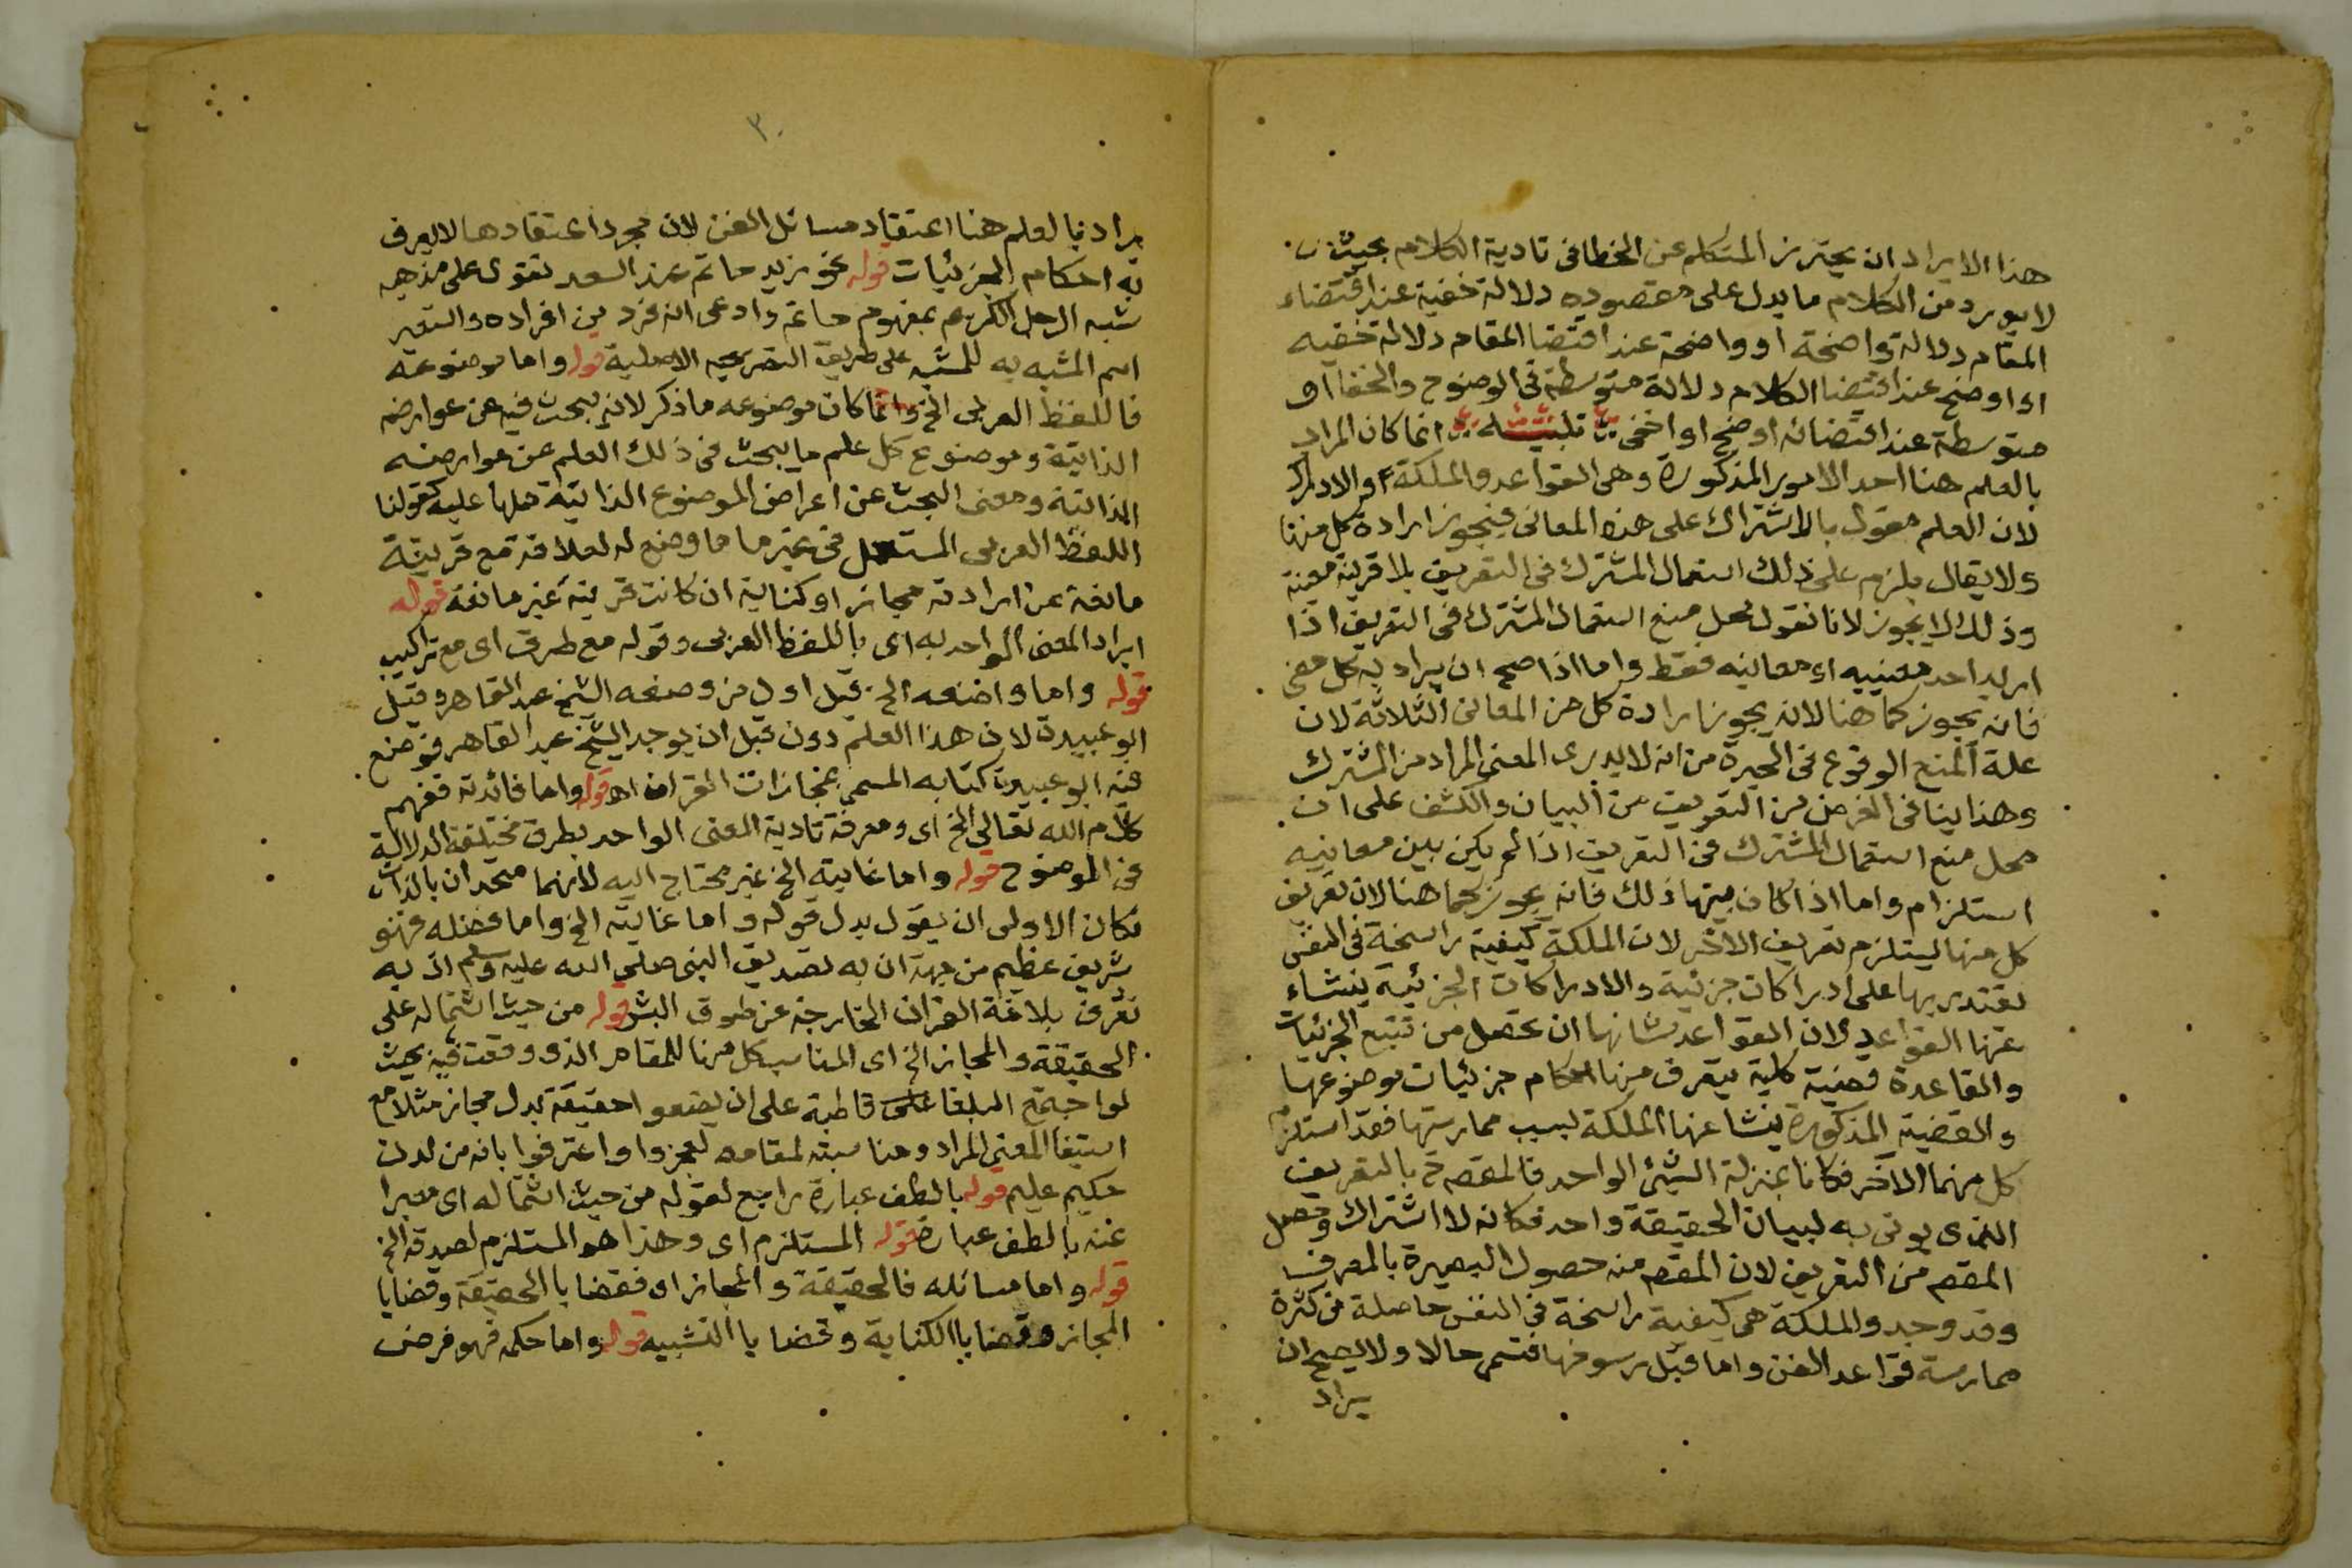 هذا الايراد ان يحترز المتكلم عن الخطا فى تادية الكلام بحيث
لا يورد من الكلام ما يدل على مقصوده دلالة خفية عند اقتضاء
المقام دلالة واضحة او واضحة عند اقتضا المقام دلالة خفيه
او اوضح عند اقتضا الكلام دلالة متوسطة فى الوضوح والخفا او
متوسطة عند اقتضائه اوضح او اخفى انما كان المراد
بالعلم هنا احد الامور المذكورة وهى القواعد والملكة او الادراك
لان العلم مقول بالاشتراك على هذه المعانى فيجوز ارادة كل منها
ولا يقال يلزم على ذلك استعمال المشترك فى التعريف بلا قرينة معينة
وذلك لا يجوز لانا نقول محل منع استعمال المشترك فى التعريف اذا
اريد احد معنييه او معانيه فقط واما اذا صح ان يراد به كل معنى
فانه يجوز كما هنا لانه يجوز ارادة كل من المعانى الثلاثة لان
علة المنع الوقوع فى الحيرة من انه لا يدرى المعنى المراد من المشترك
وهذا ينافى الغرض من التعريف من البيان والكشف على ان
محل منع استعمال المشترك فى التعريف اذا لم يكن بين معانيه
استلزام واما اذا كان بينها ذلك فانه يجوز كما هنا لان تعريف
كل منها يستلزم تعريف الاخر لان الملكة كيفية راسخة فى النفس
يقتدر بها على ادراكات جزئية والادراكات الجزئية ينشاء
عنها القواعد لان القواعد شانها ان تحصل من تتبع الجزئيات
والقاعدة قضية كلية يتعرف منها احكام جزئيات موضوعها
والقضية المذكورة ينشا عنها الملكة بسبب ممارستها فقد استلزم
كل منهما الآخر فكانا بمنزلة الشئ الواحد فالمقصود بالتعريف
الذى يوتى به لبيان الحقيقة واحد فكانه لا اشتراك وحصل
المقصـ من التعريف لان المقصـ منه حصول البصيرة بالمعرف
وقد وجد والملكة هى كيفية راسخة فى النفس حاصلة من كثرة
ممارسة قواعد الفن واما قبل رسوخها فتسمى حالا ولا يصح ان
يراد
٣٠
يراد بالعلم هنا اعتقاد مسائل الفن لان مجرد اعتقادها لا يعرف
به احكام الجزئيات قوله نحو زيد حاتم عند السعد نقول على مذهبه
شبه الرجل الكريم بمفهوم حاتم وادعى انه فرد من افراده واستعير
اسم المشبه به للمشبه على طريق التصريحيه الاصلية قوله واما موضوعه
فاللفظ العربى الخ وانما كان موضوعه ما ذكر لانه يبحث فيه عن عوارضه
الذاتية وموضوع كل علم ما يبحث فى ذلك العلم عن عوارضه
الذاتية ومعنى البحث عن اعراض الموضوع الذاتية حملها عليه كقولنا
اللفظ العربى المستعمل فى غير ما وضع له لعلاقة مع قرينة
مانعة عن ارادته مجاز او كناية ان كانت قرينة غير مانعة قوله
ايراد المعنى الواحد به اى باللفظ العربى وقوله مع طرق اى مع تراكيب
قوله واما واضعه الخ قيل اول من وضعه الشيخ عبد القاهر وقيل
ابو عبيدة لان هذا العلم دون قبل ان يوجد الشيخ عبد القاهر فوضع
فيه ابو عبيدة كتابه المسمى بمجازات القران اه قوله واما فائدته ففهم
كلام الله تعالى الخ اى ومعرفة تادية المعنى الواحد بطرق مختلفة الدلالة
فى الوضوح قوله واما غايته الخ غير محتاج اليه لانهما متحدان بالذات
فكان الاولى ان يقول بدل قوله واما غايته الخ واما فضله فهو
شريف عظيم من جهة ان به تصديق النبى صلى الله عليه وسلم اذ به
تعرف بلاغة القران الخارجة عن طوق البشر قوله من حيث اشتماله على
الحقيقة والمجاز الخ اى المناسب كل منها للمقام الذى وقعت فيه بحيث
لو اجتمع البلغا قاطبة على ان يضعوا حقيقة بدل مجاز مثلا مع
استيفا المعنى المراد ومناسبته لمقامه لعجزوا واعترفوا بانه من لدن
حكيم عليم قوله بالطف عبارة راجع لقوله من حيث اشتماله اى معبرا
عنه بالطف عبارة قوله المستلزم اى وهذا هو المستلزم لصدقه الخ
قوله واما مسائله فالحقيقة والمجاز اى فقضايا الحقيقة وقضايا
المجاز وقضايا الكناية وقضايا التشبيه قوله واما حكمه فهو فرض